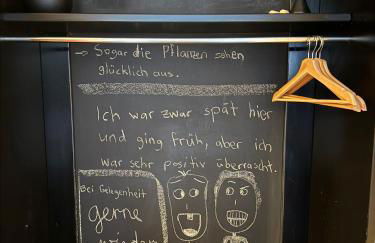 → Sogar die Pflanzen sehen
glücklich aus.
Ich war zwar spät hier
und ging früh, aber ich
war sehr positiv überrascht.
Bei Gelegenheit
gerne
wieder